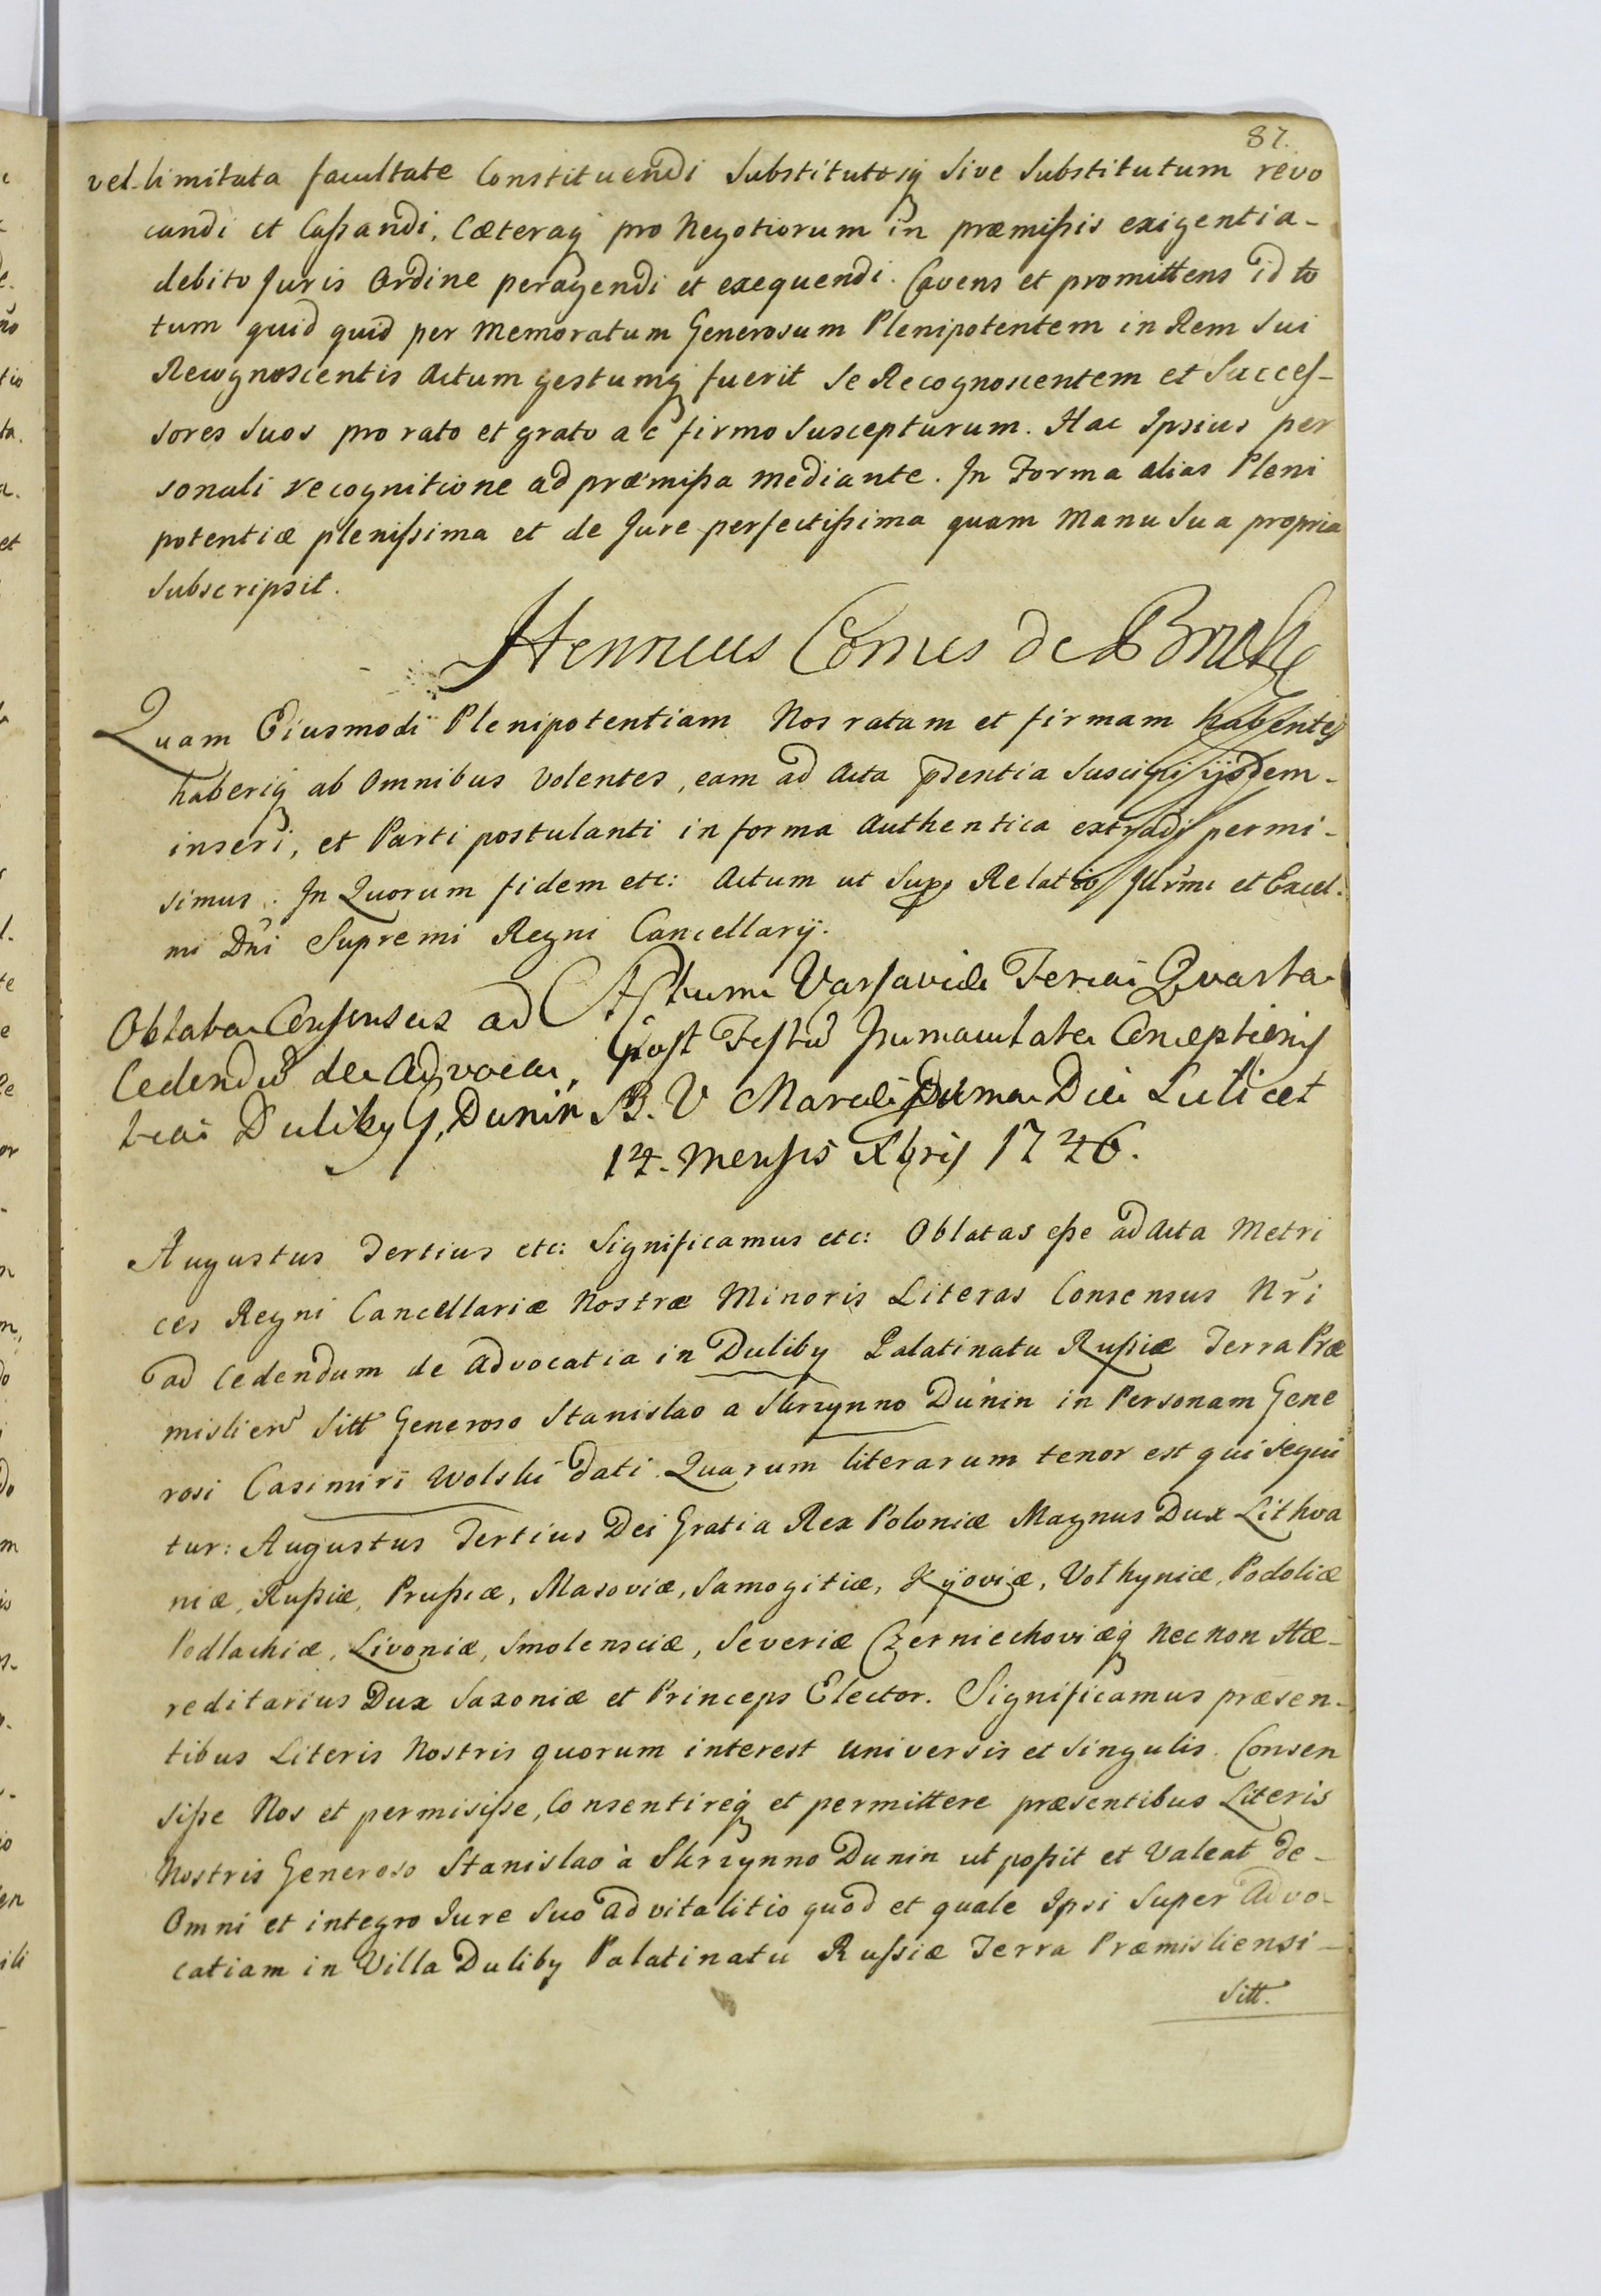 87.
vel limitata facultate Constituendi Substitutosq Sive Substitutum revo
candi et Cassandi, Cæteraq pro Negotiorum in præmissis exigentia-
debito Juris Ordine peragendi et exequendi. Cavens et promittens id to
tum quid quid per Memoratum Generosum Plenipotentem in Rem Sui
Recognoscentis Actum gestumq fuerit Se Recognoscentem et Succes-
sores Suos pro rato et grato ac firmo Suscepturum. Hac Ipsius per
sonali recognitione ad præmissa mediante. In Forma alias Pleni
potentiæ plenissima et de Jure perfectissima quam Manu Sua propria
Subscripsit.
Henricus Comes de Bruhl
Quam Eiusmodi Plenipotentiam Nos ratam et firmam habentes
haberiq ab Omnibus Volentes, eam ad Acta pñtia Suscipi ijsdem-
inseri, et Parti postulanti in forma Authentica extradi permi-
simus. In Quorum fidem etc: Actum ut Supra Relatio Illr̃mi et Excel.
mi Dñi Supremi Regni Cancellarÿ.
Oblata Consensus ad
Cedendũ de Advoca
tia Duliby G. Dunin
Actum Varsaviæ Feria Quarta
post Festũ Immaculatæ Conceptionis
B. V Mariæ Die Scilicet
14. Mensis Xbris 1746.
Augustus Tertius etc: Significamus etc: Oblatas esse ad Acta Metri
ces Regni Cancellariæ Nostræ Minoris Literas Consensus Nr̃i
ad Cedendum de Advocatia in Duliby Palatinatu Russiæ Terra Præ
mislieñ Sitt Generoso Stanislao a Skrzynno Dunin in Personam Gene
rosi Casimiri Wolski dati. Quarum literarum tenor est qui sequi
tur: Augustus Tertius Dei Gratia Rex Poloniæ Magnus Dux Lithva
niæ, Russiæ, Prussiæ, Masoviæ, Samogitiæ, Kÿoviæ, Volhyniæ, Podoliæ
Podlachiæ, Livoniæ, Smolensciæ, Severiæ Czerniechoviæq Nec non Hæ-
reditarius Dux Saxoniæ et Princeps Elector. Significamus præsen-
tibus Literis Nostris quorum interest universis et Singulis. Consen
sisse Nos et permisisse, Consentireq et permittere præsentibus Literis
Nostris Generoso Stanislao à Skrzynno Dunin ut possit et Valeat de-
Omni et integro Jure Suo advitalitio quod et quale Ipsi Super Advo-
catiam in Villa Duliby Palatinatu Russiæ Terra Præmisliensi-
Sitt.